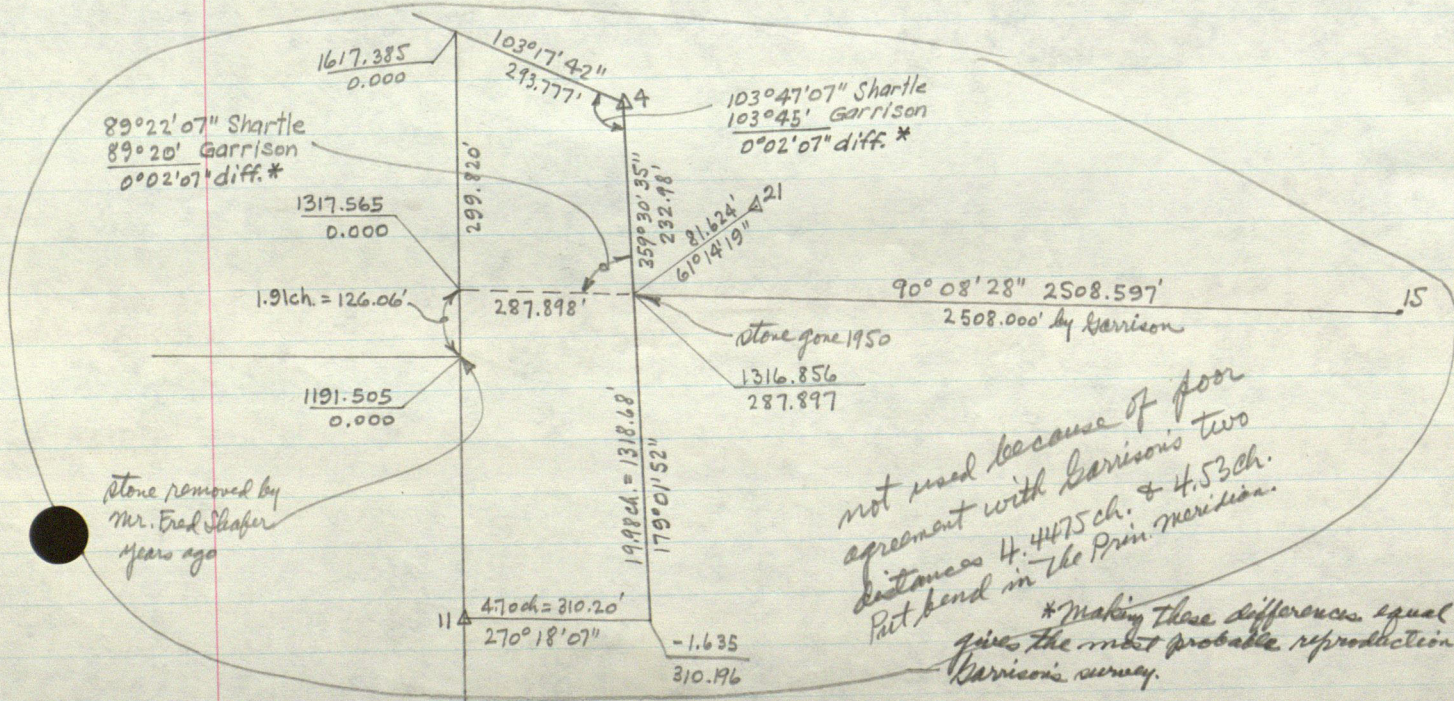 1617.385
0.000
103°17'42"
293.777'
4
103°47'07" Shartle
103°45' Garrison
0°02'07" diff. *
89°22'07" Shartle
89°20' Garrison
0°02'07" diff. *
299.820'
359°30'35"
232.98'
21
81.624'
61°14'19"
1317.565
0.000
1.91ch. = 126.06'
287.898'
90°08'28" 2508.597'
2508.000' by Garrison
15
stone gone 1950
1316.856
287.897
1191.505
0.000
19.98ch. = 1318.68'
179°01'52"
stone removed by
Mr. Fred Shafer
years ago
not used because of poor
agreement with Garrison's two
distances 4.4475ch. & 4.53ch.
Put bend in the Prin. Meridian.
11
4.70ch = 310.20'
270°18'07"
-1.635
310.196
*Making these differences equal
gives the most probable reproduction
Garrison's survey.